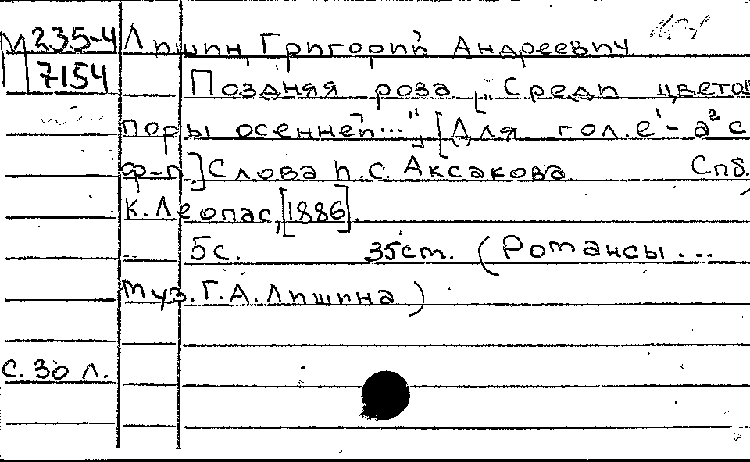 М 235-4 Лишин, Григорий Андреевич
7154 Поздняя роза ["Среди цветов
поры осенней..."] [Для гол. e¹-a² с
ф-п.] Слова И.С. Аксакова. Спб.
К. Леопас, [1886].
5с. 35ст. (Романсы...
муз. Г.А. Лишина)
с. 30 л.